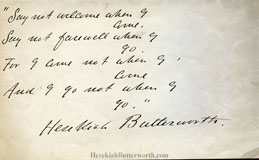 "Say not welcome when I
come.
Say not farewell when I
go.
For I come not when I
come
And I go not when I
go."
Hezekiah Butterworth.
HezekiahButterworth.com